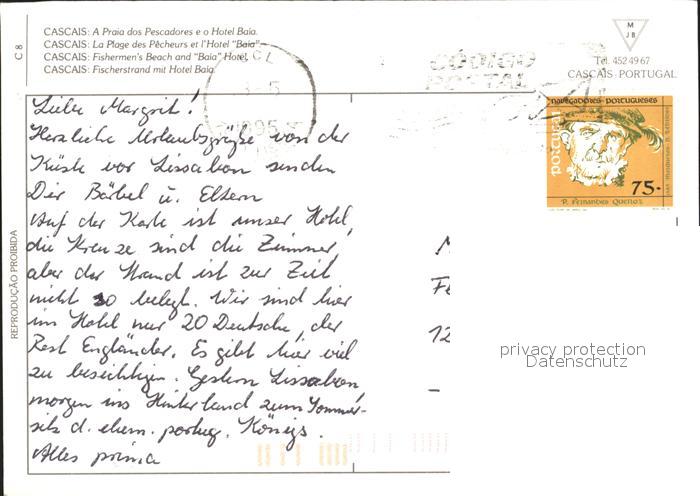 CASCAIS: A Praia dos Pescadores e o Hotel Baia.
CASCAIS: La Plage des Pêcheurs et l'Hotel "Baia".
CASCAIS: Fishermen's Beach and "Baia" Hotel.
CASCAIS: Fischerstrand mit Hotel Baia.
C 8
REPRODUÇÃO PROIBIDA
M
J B
Tel. 452 49 67
CASCAIS - PORTUGAL
CÓDIGO
POSTAL
1995
NAVEGADORES PORTUGUESES
portugal
75.
P. Fernandes Queiroz
Liebe Margrit!
Herzliche Urlaubsgrüße von der
Küste vor Lissabon senden
Dir Bärbel u. Eltern
Auf der Karte ist unser Hotel,
die Kreuze sind die Zimmer,
aber der Strand ist zur Zeit
nicht so belegt. Wir sind hier
im Hotel nur 20 Deutsche, der
Rest Engländer. Es gibt hier viel
zu besichtigen. Gestern Lissabon,
morgen ins Hinterland zum Sommer-
sitz d. ehem. portug. Königs.
Alles prima
12
privacy protection
Datenschutz